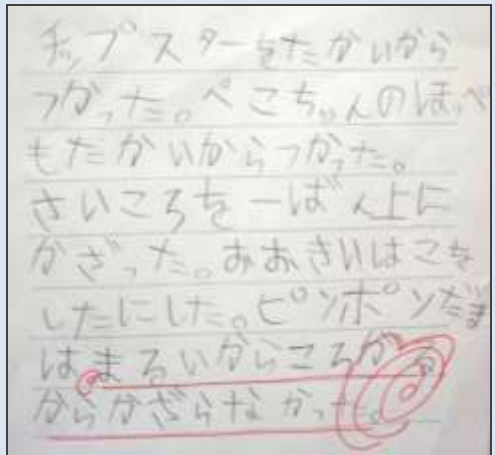 チップスターをたかいから
つかった。ぺこちゃんのほっぺ
もたかいからつかった。
さいころを一ばん上に
かざった。おおきいはこを
したにした。ピンポンだま
はまるいからころがる
からかざらなかった。